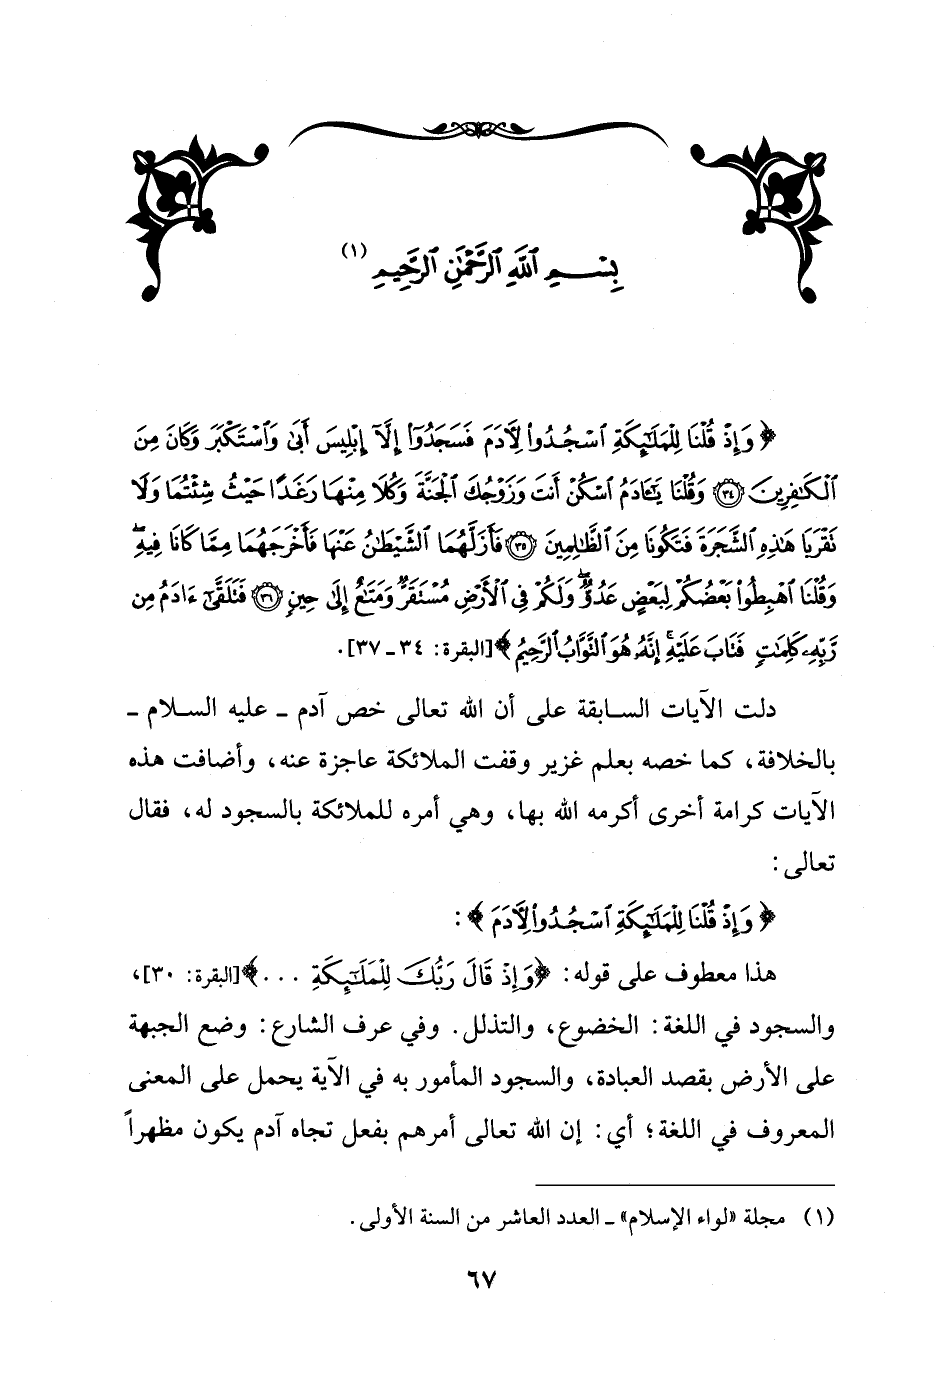 بِسْمِ ٱللَّهِ ٱلرَّحْمَٰنِ ٱلرَّحِيمِ (١)
﴿ وَإِذْ قُلْنَا لِلْمَلَٰٓئِكَةِ ٱسْجُدُوا۟ لِـَٔادَمَ فَسَجَدُوٓا۟ إِلَّآ إِبْلِيسَ أَبَىٰ وَٱسْتَكْبَرَ وَكَانَ مِنَ
ٱلْكَٰفِرِينَ ٣٤ وَقُلْنَا يَٰٓـَٔادَمُ ٱسْكُنْ أَنتَ وَزَوْجُكَ ٱلْجَنَّةَ وَكُلَا مِنْهَا رَغَدًا حَيْثُ شِئْتُمَا وَلَا
تَقْرَبَا هَٰذِهِ ٱلشَّجَرَةَ فَتَكُونَا مِنَ ٱلظَّٰلِمِينَ ٣٥ فَأَزَلَّهُمَا ٱلشَّيْطَٰنُ عَنْهَا فَأَخْرَجَهُمَا مِمَّا كَانَا فِيهِ ۖ
وَقُلْنَا ٱهْبِطُوا۟ بَعْضُكُمْ لِبَعْضٍ عَدُوٌّ ۖ وَلَكُمْ فِى ٱلْأَرْضِ مُسْتَقَرٌّ وَمَتَٰعٌ إِلَىٰ حِينٍ ٣٦ فَتَلَقَّىٰٓ ءَادَمُ مِن
رَّبِّهِۦ كَلِمَٰتٍ فَتَابَ عَلَيْهِ ۚ إِنَّهُۥ هُوَ ٱلتَّوَّابُ ٱلرَّحِيمُ ﴾ [البقرة: ٣٤ ـ ٣٧].
دلت الآيات السابقة على أن الله تعالى خص آدم ـ عليه السلام ـ
بالخلافة، كما خصه بعلم غزير وقفت الملائكة عاجزة عنه، وأضافت هذه
الآيات كرامة أخرى أكرمه الله بها، وهي أمره للملائكة بالسجود له، فقال
تعالى:
﴿ وَإِذْ قُلْنَا لِلْمَلَٰٓئِكَةِ ٱسْجُدُوا۟ لِـَٔادَمَ ﴾:
هذا معطوف على قوله: ﴿وَإِذْ قَالَ رَبُّكَ لِلْمَلَٰٓئِكَةِ ...﴾ [البقرة: ٣٠]،
والسجود في اللغة: الخضوع، والتذلل. وفي عرف الشارع: وضع الجبهة
على الأرض بقصد العبادة، والسجود المأمور به في الآية يحمل على المعنى
المعروف في اللغة؛ أي: إن الله تعالى أمرهم بفعل تجاه آدم يكون مظهراً
(١) مجلة «لواء الإسلام» ـ العدد العاشر من السنة الأولى.
٦٧